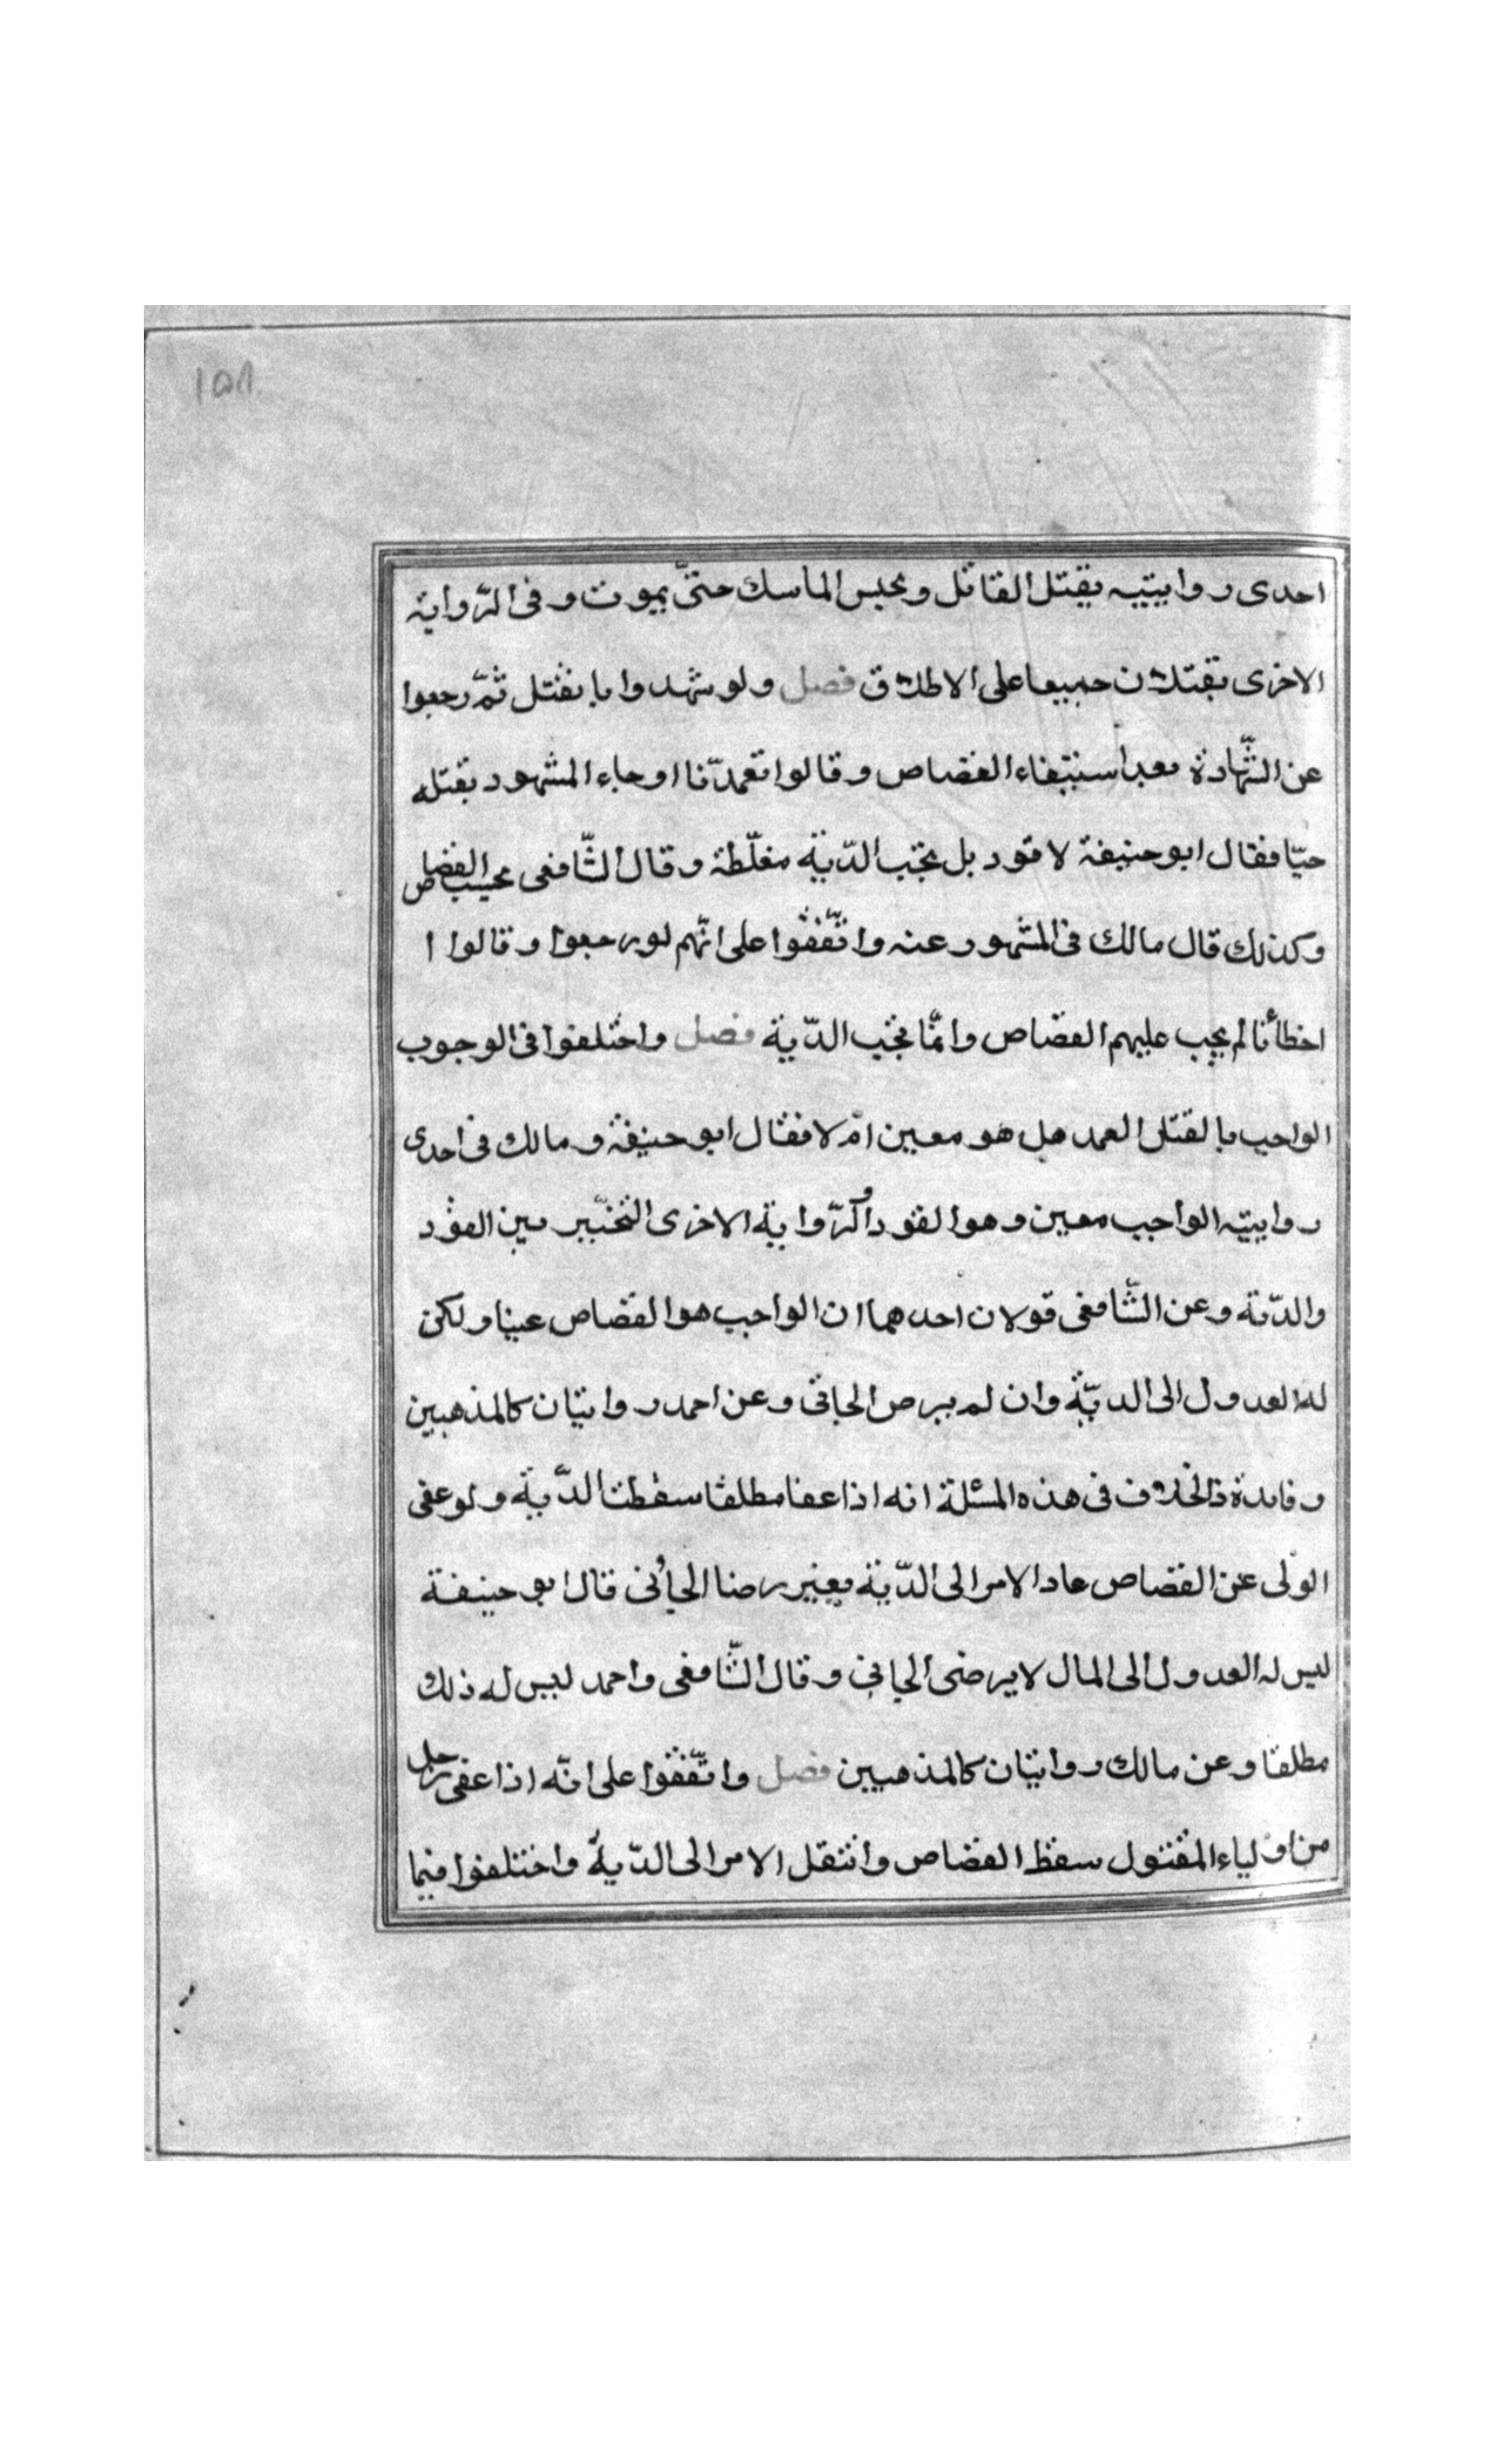 ١٥٨
احدى روايتيه يقتل القاتل ويحبس الماسك حتىّ يموت وفى الرّواية
الاخرى يقتلان جميعا على الاطلاق فصل ولو شهدوا بالقتل ثمّ رجعوا
عن الشّهادة بعد استيفاء القصاص وقالوا تعمدّنا او جاء المشهود بقتله
حيّا فقال ابو حنيفة لا قود بل تجب الدّية مغلّظة وقال الشّافعى يجب القصاص
وكذلك قال مالك فى المشهور عنه واتّفقوا على انّهم لو رجعوا وقالوا ا
اخطأنا لم يجب عليهم القصاص وانمّا تجب الدّية فصل واختلفوا فى الوجوب
الواجب بالقتل العمد هل هو معين ام لا فقال ابو حنيفة ومالك فى احدى
روايتيه الواجب معين وهو القود والرّواية الاخرى التخيّير بين القود
والدّية وعن الشّافعى قولان احدهما ان الواجب هو القصاص عينا ولكن
له العدول الى الديّة وان لم يرض الجانى وعن احمد روايتان كالمذهبين
وفايدة ذالخلاف فى هذه المسئلة انه اذا عفا مطلقا سقطت الدّية ولو عفى
الولى عن القصاص عاد الامر الى الدّية بغير رضا الجانى قال ابو حنيفة
ليس له العدول الى المال لا يرضى الجانى وقال الشّافعى واحمد ليس له ذلك
مطلقا وعن مالك روايتان كالمذهبين فصل واتّفقوا على انّه اذا عفى رجل
من اولياء المقتول سقط القصاص وانتقل الامر الى الدّية واختلفوا فيما